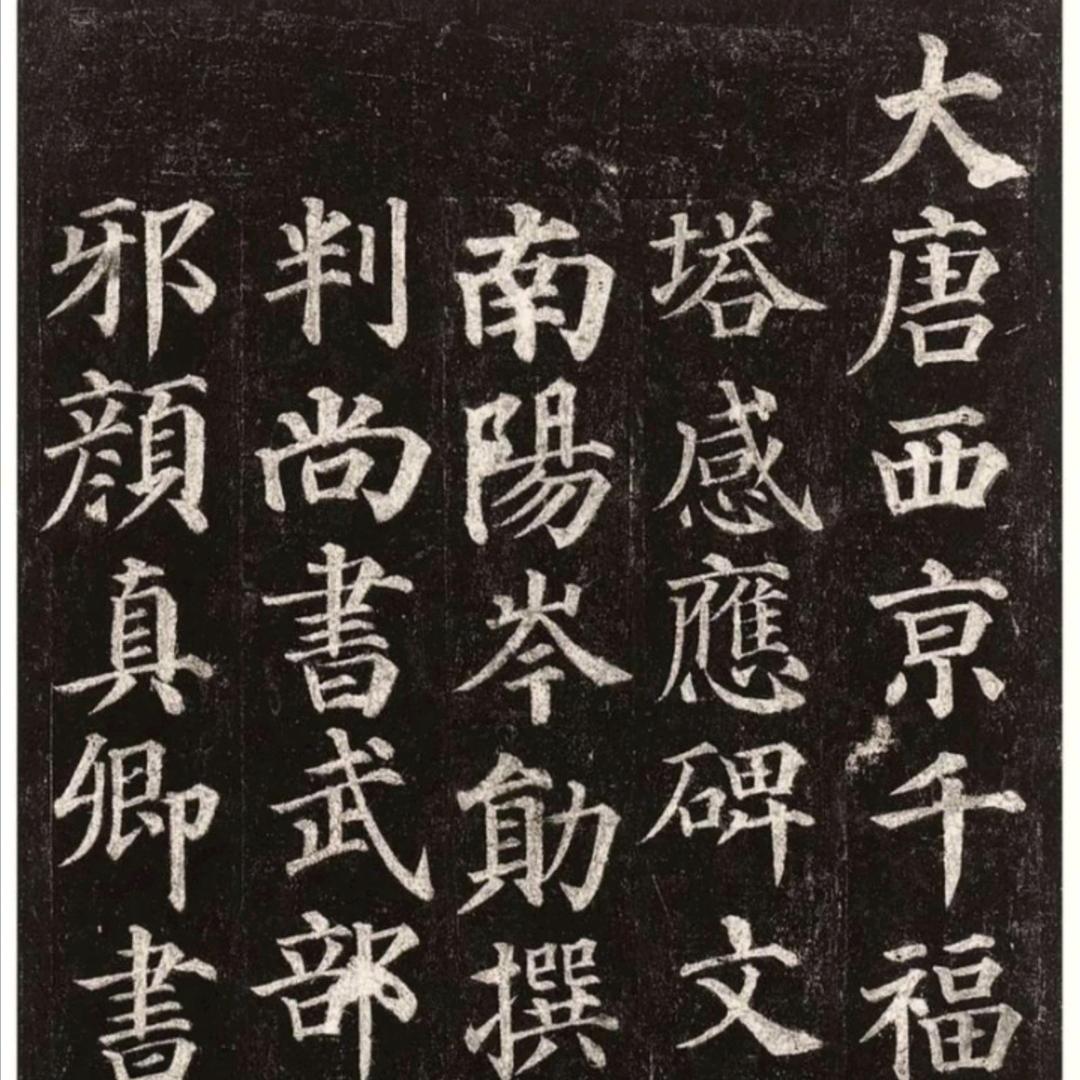 大唐西京千福
塔感應碑文
南陽岑勛撰
判尚書武部
邪顏真卿書